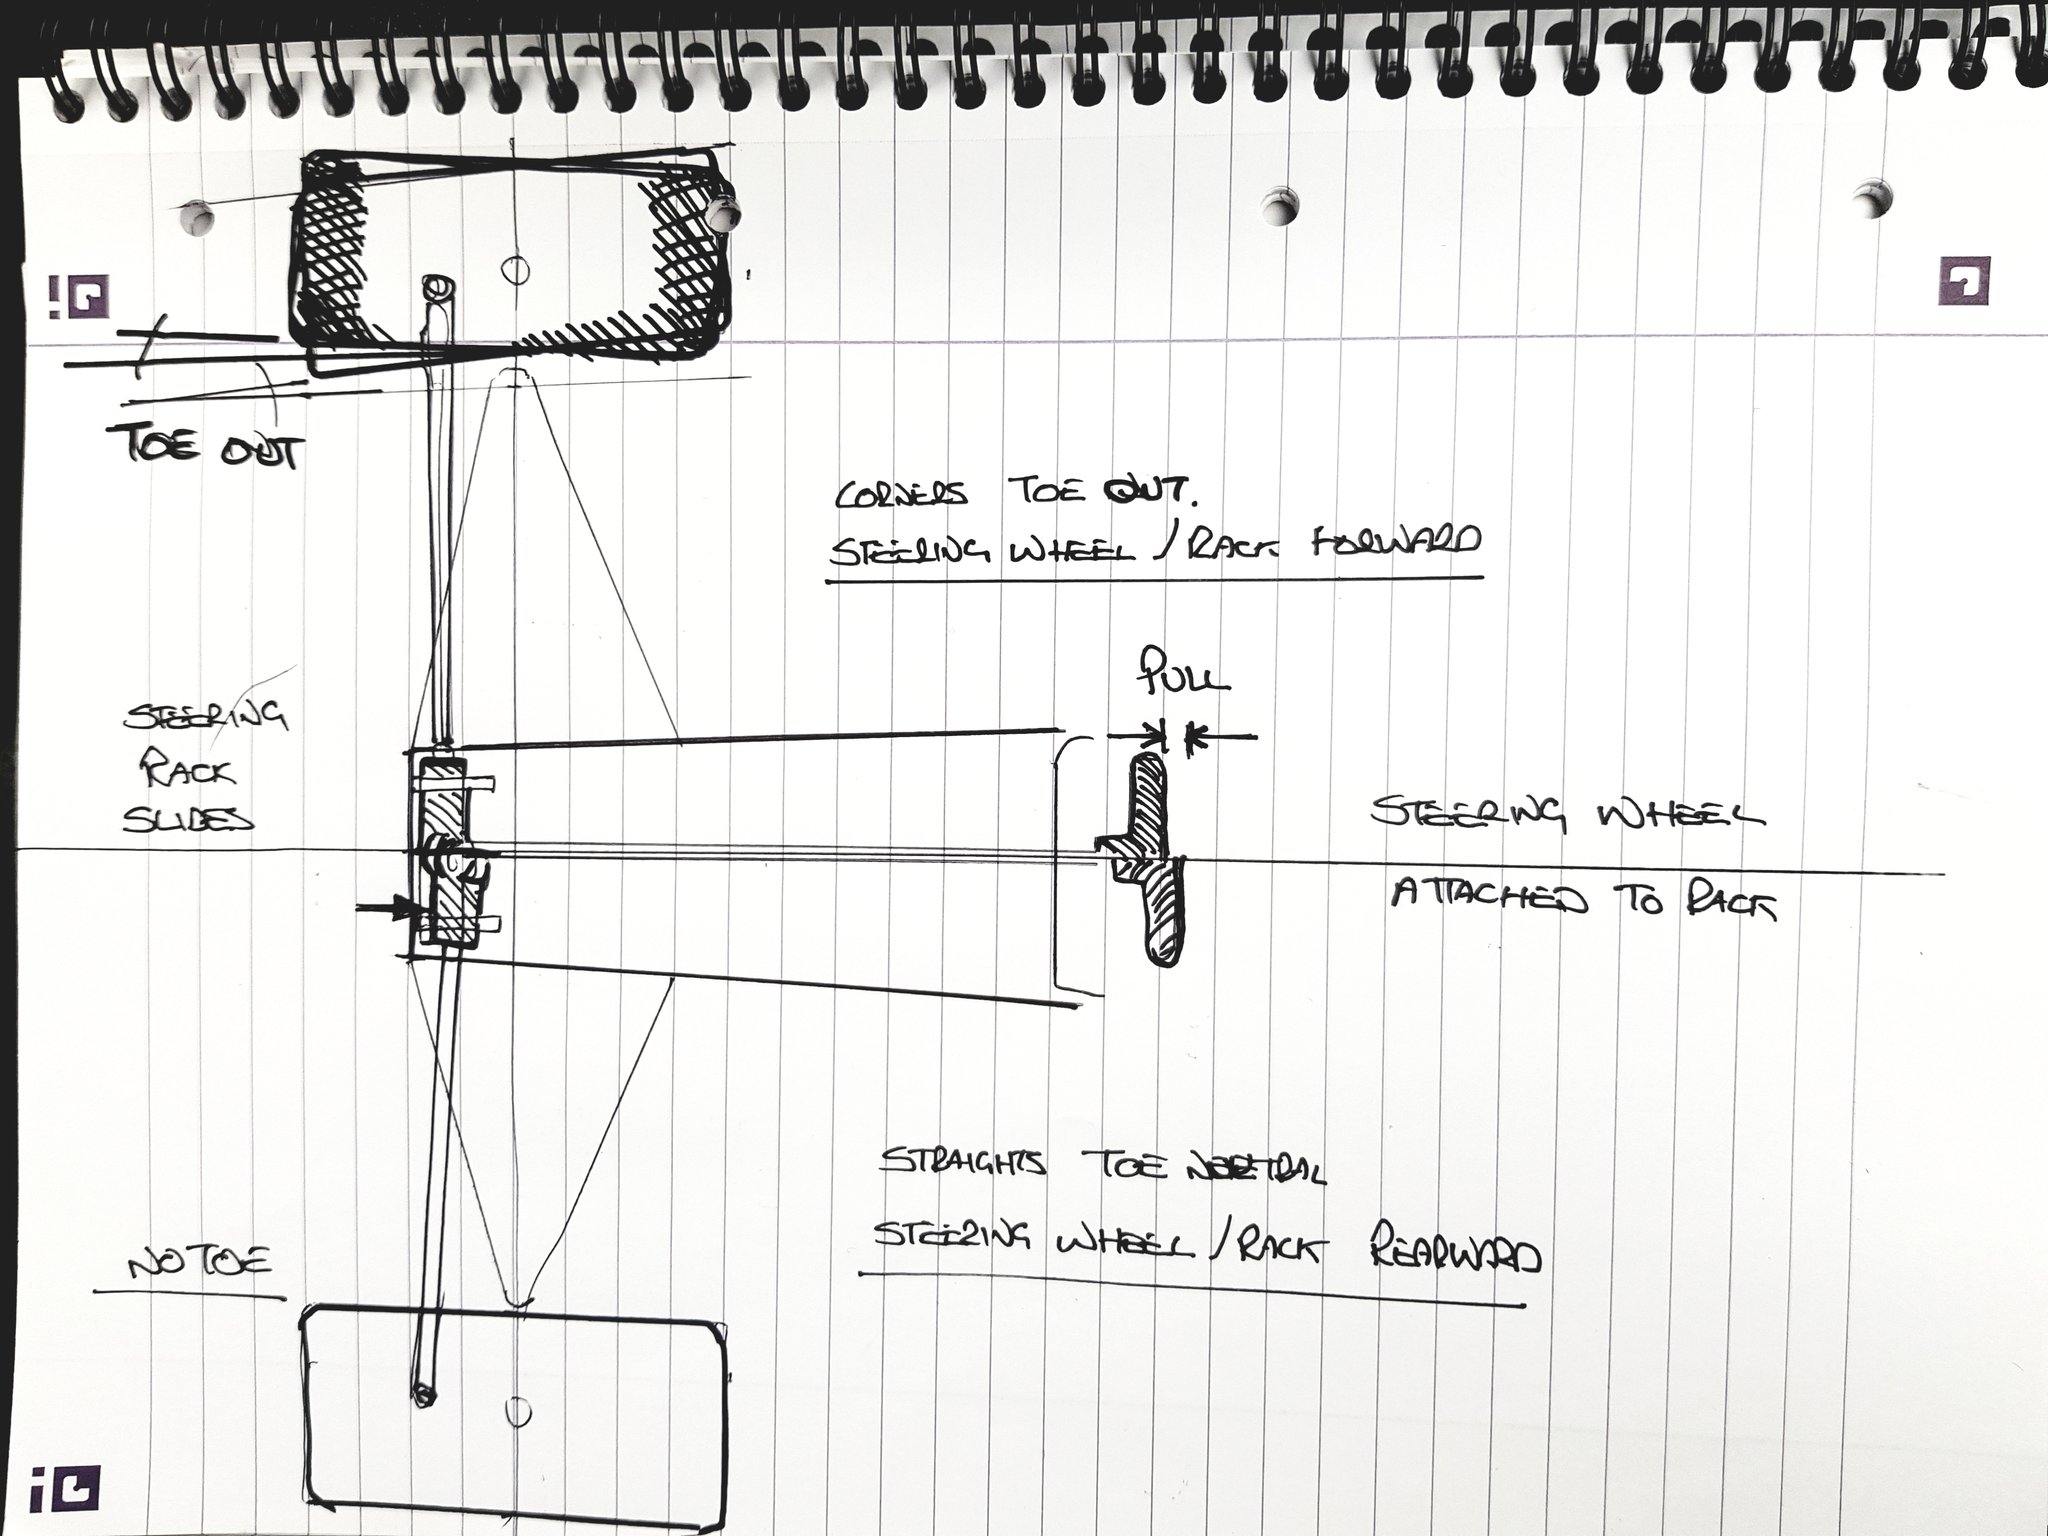 TOE OUT
CORNERS TOE OUT.
STEERING WHEEL / RACK FORWARD
PULL
STEERING
RACK
SLIDES
STEERING WHEEL
ATTACHED TO RACK
STRAIGHTS TOE NEUTRAL
STEERING WHEEL / RACK REARWARD
NO TOE